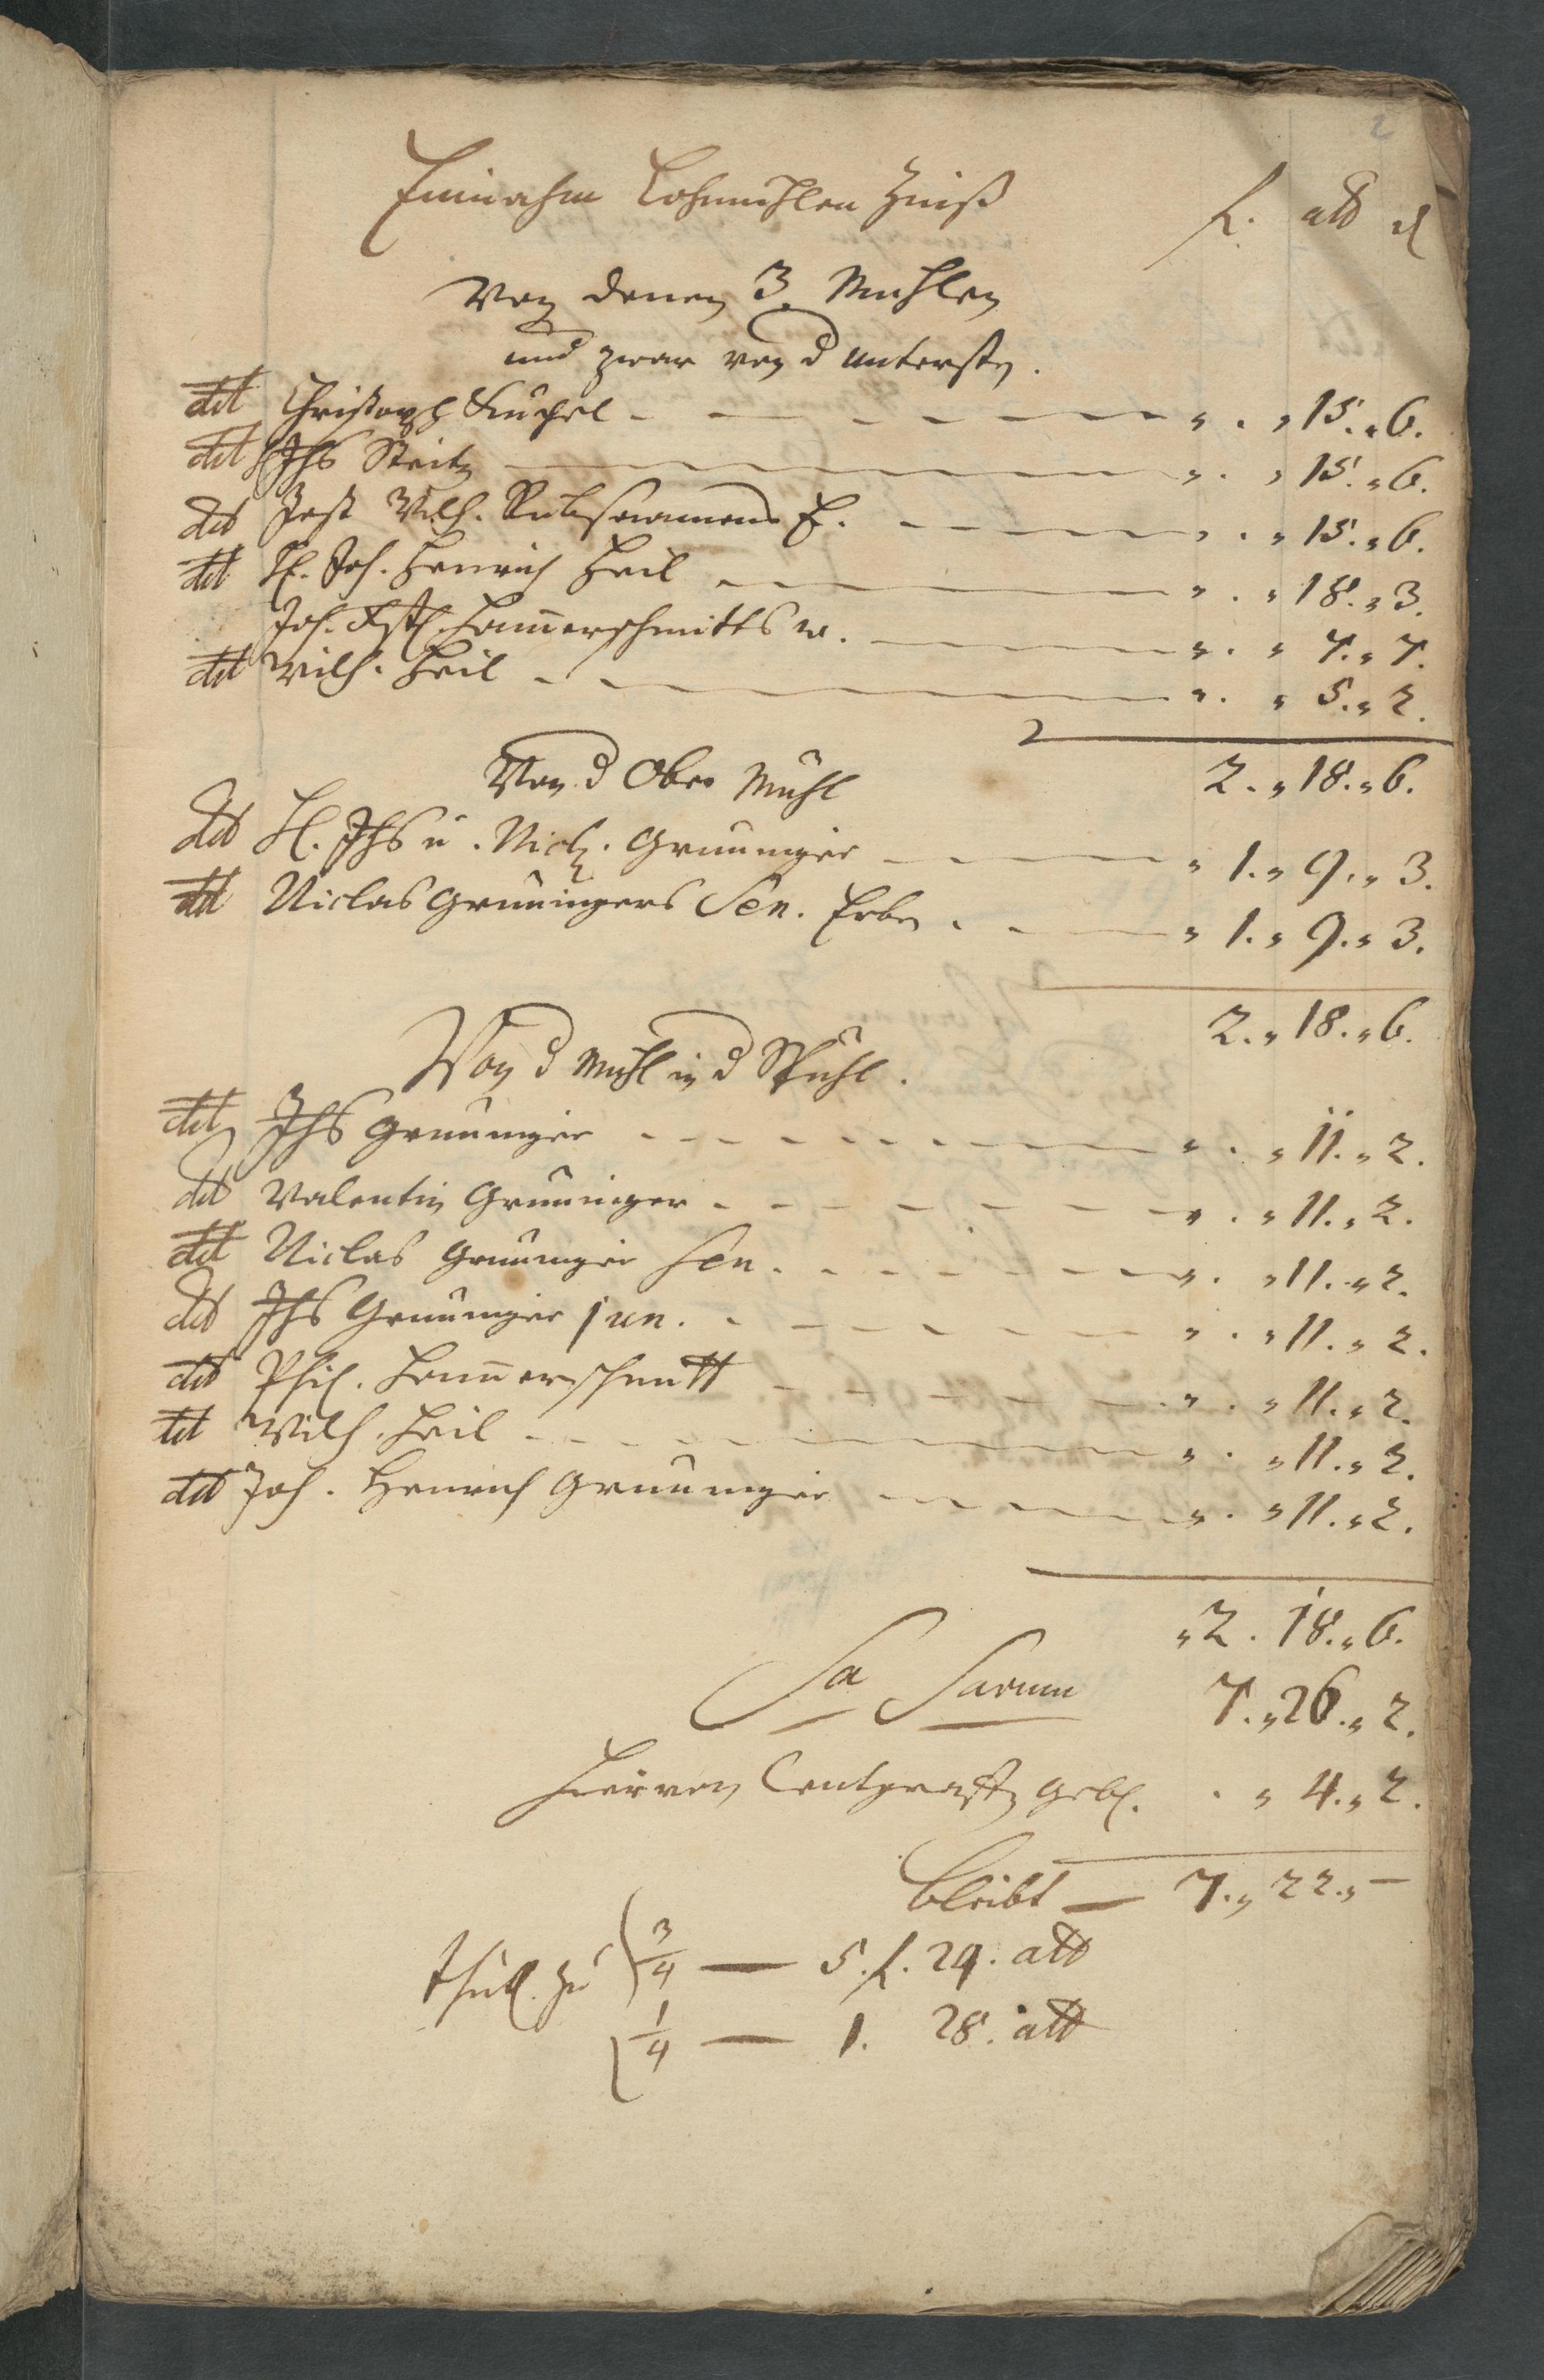 2
Einnahm Lohmühlen Zinß f. alb d
Von denen 3. Mühlen
und zwar von d untersten.
dt Christoph Küchel - - - - - " . " 15. " 6.
dt Jhs Steitz - - - " . " 15. " 6.
dt Jost Wilh. Rübsaamens E. - - - " . " 15. " 6.
dt H. Joh. Henrich Heil - - - " . " 18. " 3.
Joh. Hammerschmitts w. - - " . " 7. " 7.
dt Wilh. Heil - - - " . " 5. " 2.
2. " 18. " 6.
Von d Ober Mühl
dt H. Jhs u. Nicl. Grüninger - - - " 1. " 9. " 3.
dt Niclas Grüningers Sen. Erben . - - " 1. " 9. " 3.
2. " 18. " 6.
Von d Mühl in d Pfühl.
dt Jhs Grüninger - - - - - " . " 11. " 2.
dt Valentin Grüninger - - - - - " . " 11. " 2.
dt Niclas Grüninger Sen. - - - - " . " 11. " 2.
dt Jhs Grüninger jun. - - - - " . " 11. " 2.
dt Phil. Hammerschmitt - - - - " . " 11. " 2.
dt Wilh. Heil - - - - " . " 11. " 2.
dt Joh. Henrich Grüninger - - - " . " 11. " 2.
" 2. 18. " 6.
Sa Sarum 7. " 26. " 2.
Hiervon Centgraffen geb. . " 4. " 2.
bleibt — 7. " 22. " —
zu 3/4 — 5. f. 24. alb
1/4 — 1. 28. alb